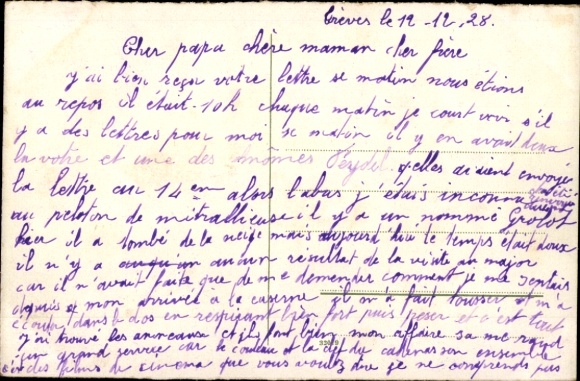 Trèves le 12-12.28.
Cher papa chère maman cher frère
j'ai bien reçu votre lettre se matin nous étions
au repos il était 10h chaque matin je court voir s'il
y a des lettres pour moi se matin il y en avait deux
la votre et une des mômes Peydel qelles avaient envoyé
la lettre au 14em alors labas j'étais inconnu
au peloton de mitrallieuse il y a un nommé Grolot
hier il a tombé de la neige mais aujourd'hui le temps était doux
il n'y a aucun résultat de la visite au major
car il n'avait faite que de me demender comment je me sentais
depuis mon arrivée a la caserne il m'a fait tousser et m'a
dans le dos en respirant bien fort puis peser et c'est tout
j'ai trouvé les anneaux et ils font bien mon affaire sa me rend
un grand service car le couteau et la clef du cadenas son ensemble
des films de cinema que vous voulez dire je ne comprends pas